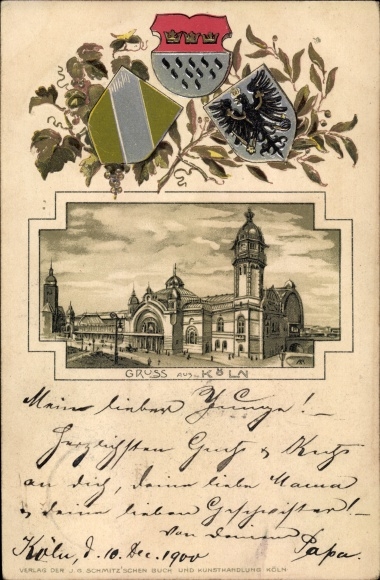 GRUSS AUS KÖLN
Mein lieber Junge! –
Herzlichsten Gruß & Kuß
an dich, deine liebe Mama
& deine lieben Geschwister! –
Von deinem Papa.
Köln, d. 10. Dec. 1900
VERLAG DER J.G. SCHMITZ'SCHEN BUCH UND KUNSTHANDLUNG KÖLN